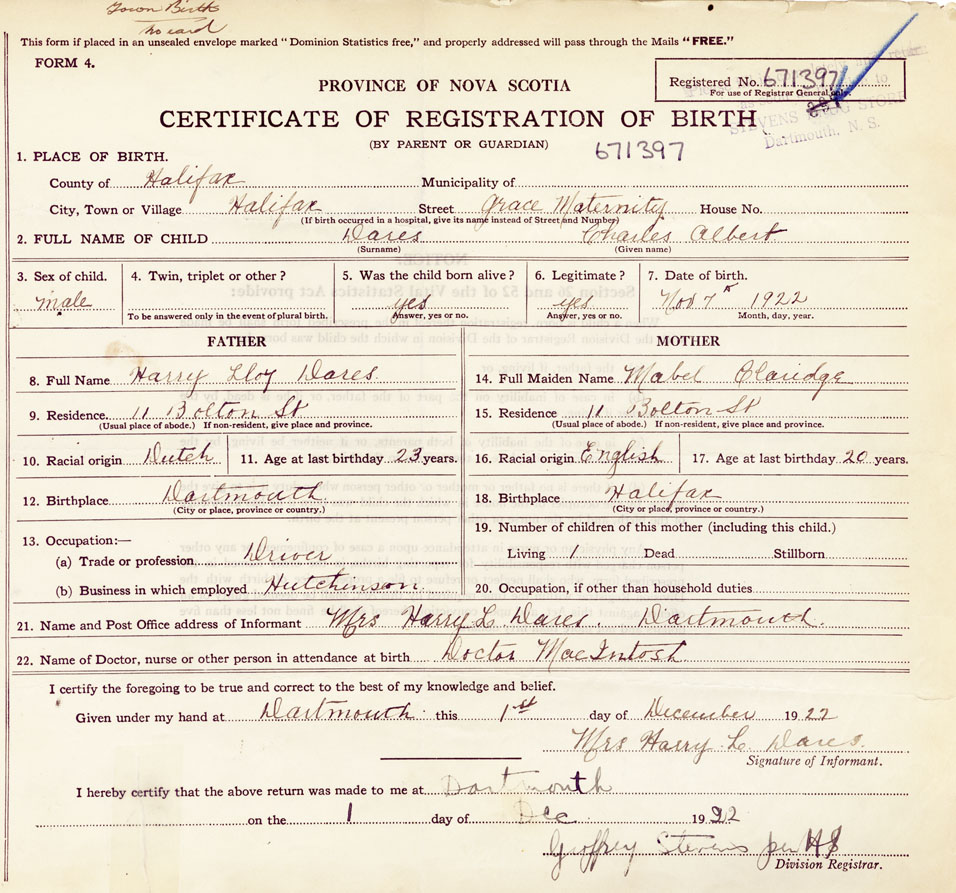 Town Birth
no card
This form if placed in an unsealed envelope marked "Dominion Statistics free," and properly addressed will pass through the Mails "FREE."
FORM 4.
Registered No. 671397
For use of Registrar General only.
STEVENS DRUG STORE
Dartmouth, N. S.
PROVINCE OF NOVA SCOTIA
CERTIFICATE OF REGISTRATION OF BIRTH
(BY PARENT OR GUARDIAN)
671397
1. PLACE OF BIRTH.
County of Halifax Municipality of
City, Town or Village Halifax Street Grace Maternity House No.
(If birth occurred in a hospital, give its name instead of Street and Number)
2. FULL NAME OF CHILD Dares Charles Albert
(Surname) (Given name)
3. Sex of child. male
4. Twin, triplet or other?
To be answered only in the event of plural birth.
5. Was the child born alive? yes
Answer, yes or no.
6. Legitimate? yes
Answer, yes or no.
7. Date of birth. Nov 7th 1922
Month, day, year.
FATHER
8. Full Name Harry Lloy Dares
9. Residence. 11 Bolton St
(Usual place of abode.) If non-resident, give place and province.
10. Racial origin Dutch 11. Age at last birthday 23 years.
12. Birthplace Dartmouth
(City or place, province or country.)
13. Occupation:—
(a) Trade or profession Driver
(b) Business in which employed Hutchinson
MOTHER
14. Full Maiden Name Mabel Claridge
15. Residence 11 Bolton St
(Usual place of abode.) If non-resident, give place and province.
16. Racial origin English 17. Age at last birthday 20 years.
18. Birthplace Halifax
(City or place, province or country.)
19. Number of children of this mother (including this child.)
Living 1 Dead Stillborn
20. Occupation, if other than household duties
21. Name and Post Office address of Informant Mrs Harry L Dares. Dartmouth.
22. Name of Doctor, nurse or other person in attendance at birth Doctor MacIntosh
I certify the foregoing to be true and correct to the best of my knowledge and belief.
Given under my hand at Dartmouth this 1st day of December 1922
Mrs Harry L. Dares.
Signature of Informant.
I hereby certify that the above return was made to me at Dartmouth
on the 1 day of Dec 1922
Geoffrey Stevens per HS
Division Registrar.